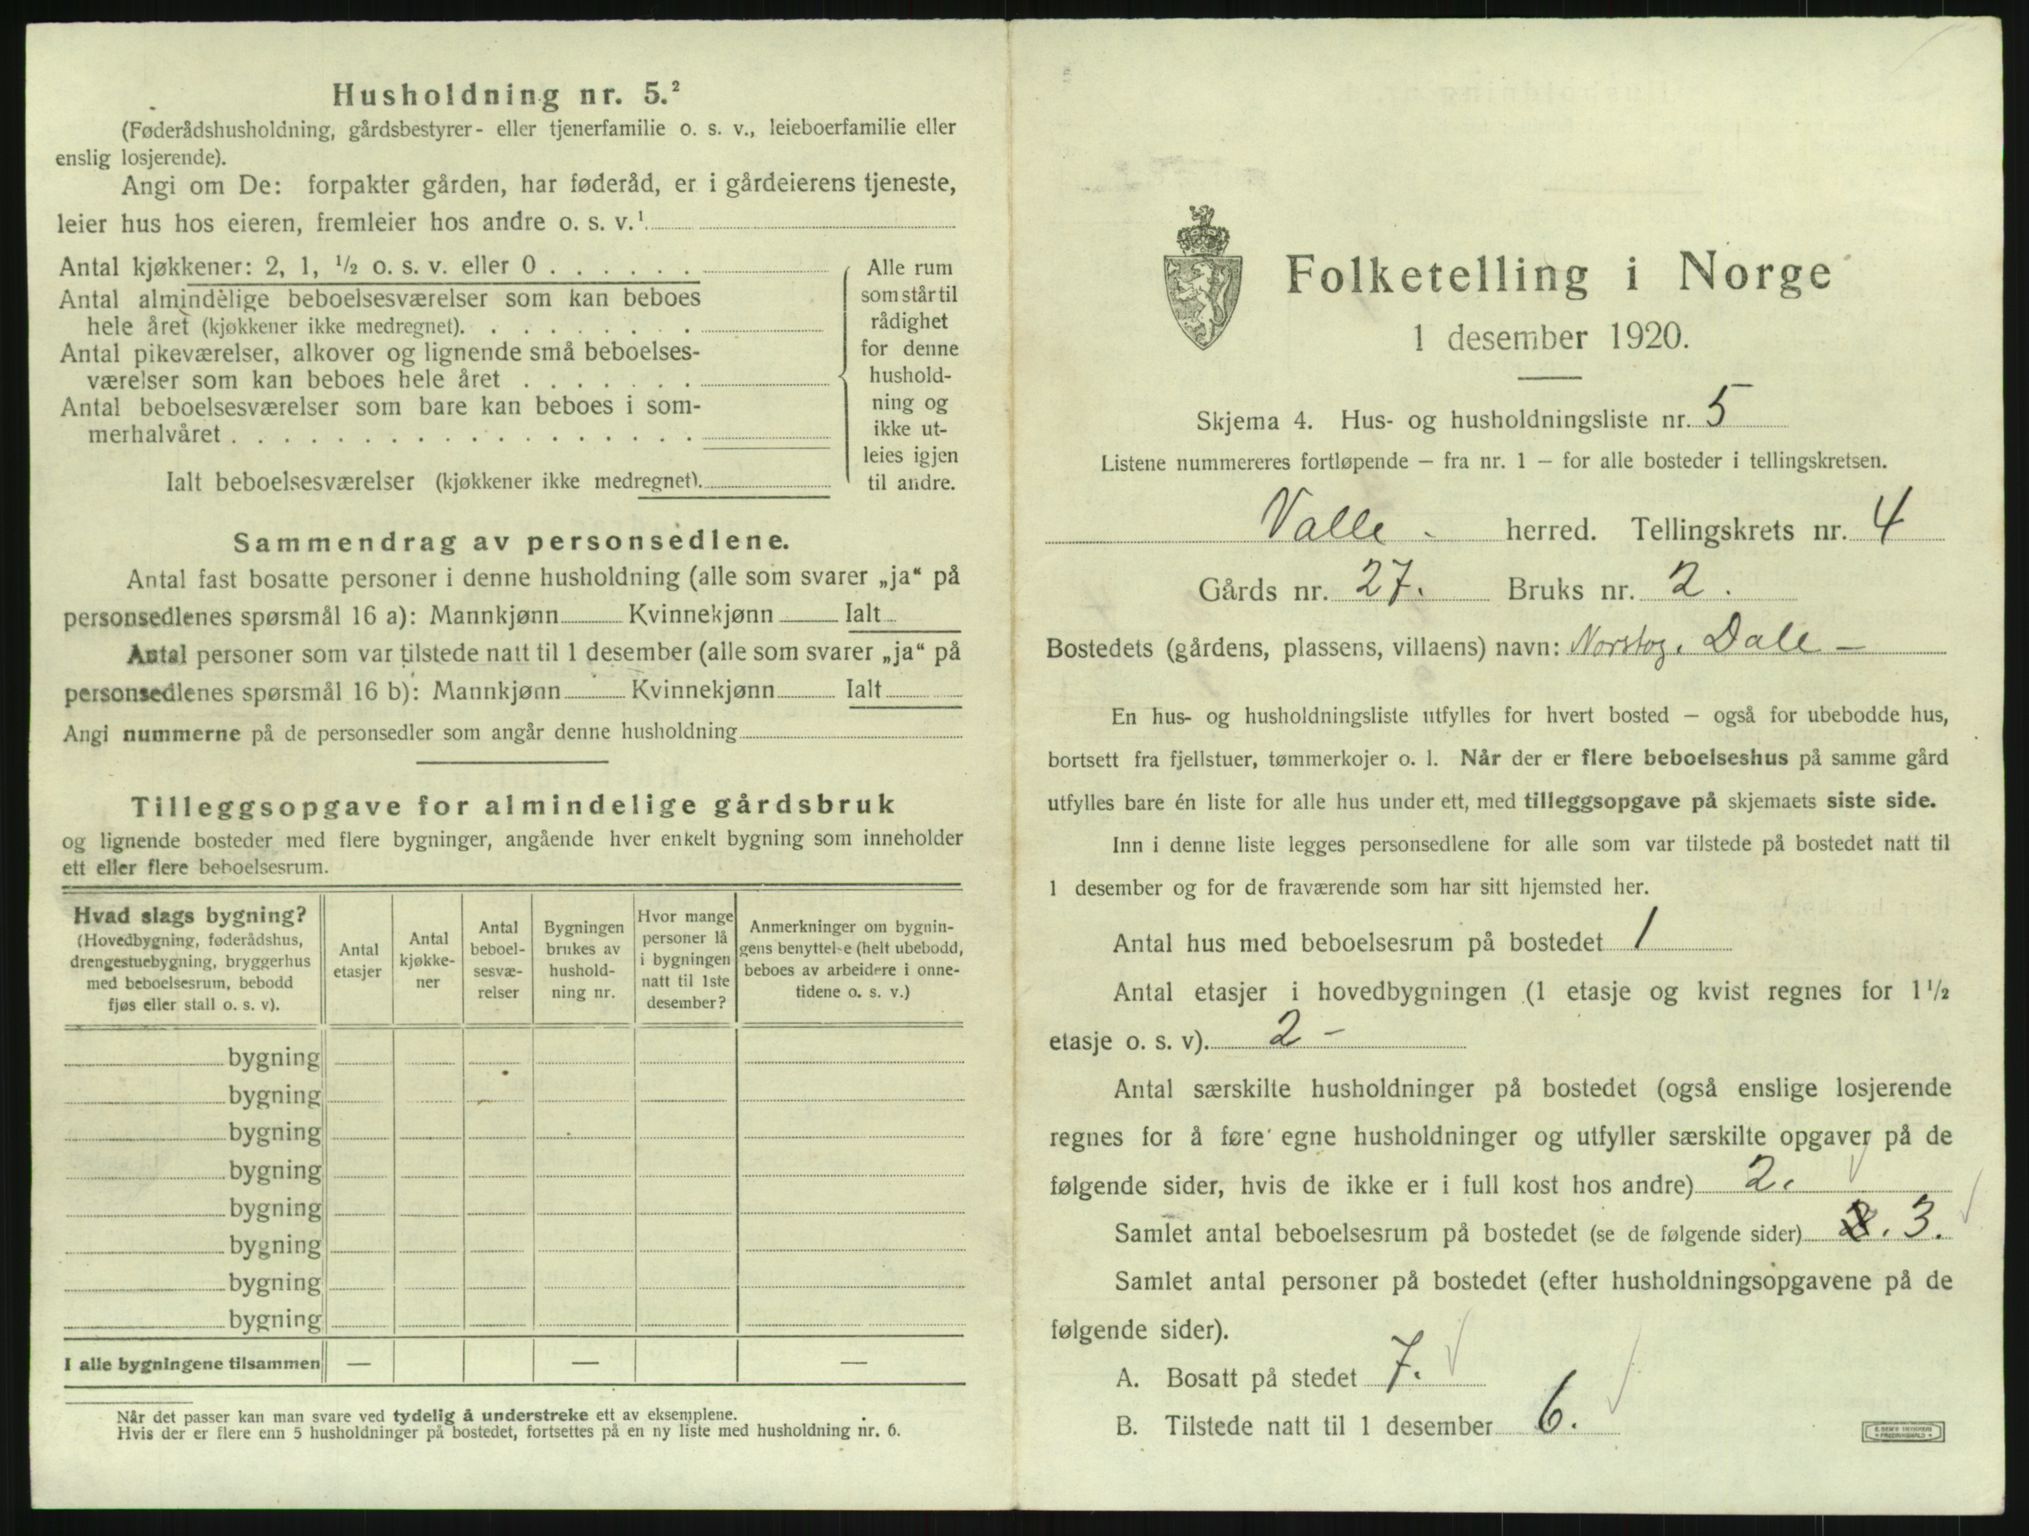 Husholdning nr. 5.²
(Føderådshusholdning, gårdsbestyrer- eller tjenerfamilie o. s. v., leieboerfamilie eller
enslig losjerende).
Angi om De: forpakter gården, har føderåd, er i gårdeierens tjeneste,
leier hus hos eieren, fremleier hos andre o. s. v.¹
Antal kjøkkener: 2, 1, ½ o. s. v. eller 0 . . . . . .
Antal almindelige beboelsesværelser som kan beboes
hele året (kjøkkener ikke medregnet). . . . . . . . .
Antal pikeværelser, alkover og lignende små beboelses-
værelser som kan beboes hele året . . . . . . .
Antal beboelsesværelser som bare kan beboes i som-
merhalvåret . . . . . . . . . . . . . . . . . .
Ialt beboelsesværelser (kjøkkener ikke medregnet).
Alle rum
som står til
rådighet
for denne
hushold-
ning og
ikke ut-
leies igjen
til andre.
Sammendrag av personsedlene.
Antal fast bosatte personer i denne husholdning (alle som svarer „ja“ på
personsedlenes spørsmål 16 a): Mannkjønn Kvinnekjønn Ialt
Antal personer som var tilstede natt til 1 desember (alle som svarer „ja“ på
personsedlenes spørsmål 16 b): Mannkjønn Kvinnekjønn Ialt
Angi nummerne på de personsedler som angår denne husholdning
Tilleggsopgave for almindelige gårdsbruk
og lignende bosteder med flere bygninger, angående hver enkelt bygning som inneholder
ett eller flere beboelsesrum.
Hvad slags bygning?
(Hovedbygning, føderådshus,
drengestuebygning, bryggerhus
med beboelsesrum, bebodd
fjøs eller stall o. s. v).
Antal
etasjer
Antal
kjøkke-
ner
Antal
beboel-
sesvæ-
relser
Bygningen
brukes av
hushold-
ning nr.
Hvor mange
personer lå
i bygningen
natt til 1ste
desember?
Anmerkninger om bygnin-
gens benyttelse (helt ubebodd,
beboes av arbeidere i onne-
tidene o. s. v.)
bygning
bygning
bygning
bygning
bygning
bygning
bygning
bygning
I alle bygningene tilsammen — — —
Når det passer kan man svare ved tydelig å understreke ett av eksemplene.
Hvis der er flere enn 5 husholdninger på bostedet, fortsettes på en ny liste med husholdning nr. 6.
Folketelling i Norge
1 desember 1920.
Skjema 4. Hus- og husholdningsliste nr. 5
Listene nummereres fortløpende — fra nr. 1 — for alle bosteder i tellingskretsen.
Valle - herred. Tellingskrets nr. 4
Gårds nr. 27. Bruks nr. 2.
Bostedets (gårdens, plassens, villaens) navn: Norstog. Dale —
En hus- og husholdningsliste utfylles for hvert bosted — også for ubebodde hus,
bortsett fra fjellstuer, tømmerkojer o. l. Når der er flere beboelseshus på samme gård
utfylles bare én liste for alle hus under ett, med tilleggsopgave på skjemaets siste side.
Inn i denne liste legges personsedlene for alle som var tilstede på bostedet natt til
1 desember og for de fraværende som har sitt hjemsted her.
Antal hus med beboelsesrum på bostedet 1
Antal etasjer i hovedbygningen (1 etasje og kvist regnes for 1½
etasje o. s. v). 2 —
Antal særskilte husholdninger på bostedet (også enslige losjerende
regnes for å føre egne husholdninger og utfyller særskilte opgaver på de
følgende sider, hvis de ikke er i full kost hos andre) 2.
Samlet antal beboelsesrum på bostedet (se de følgende sider) 3.
Samlet antal personer på bostedet (efter husholdningsopgavene på de
følgende sider).
A. Bosatt på stedet 7.
B. Tilstede natt til 1 desember 6.